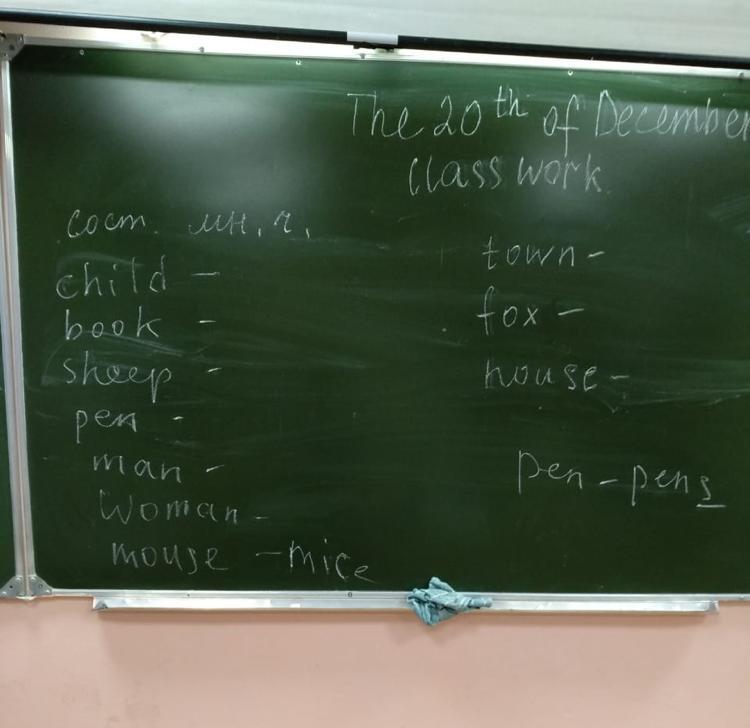 The 20th of December
Class work
сост. мн. ч.
child -
book -
sheep -
pen -
man -
woman -
mouse - mice
town -
fox -
house -
pen - pens